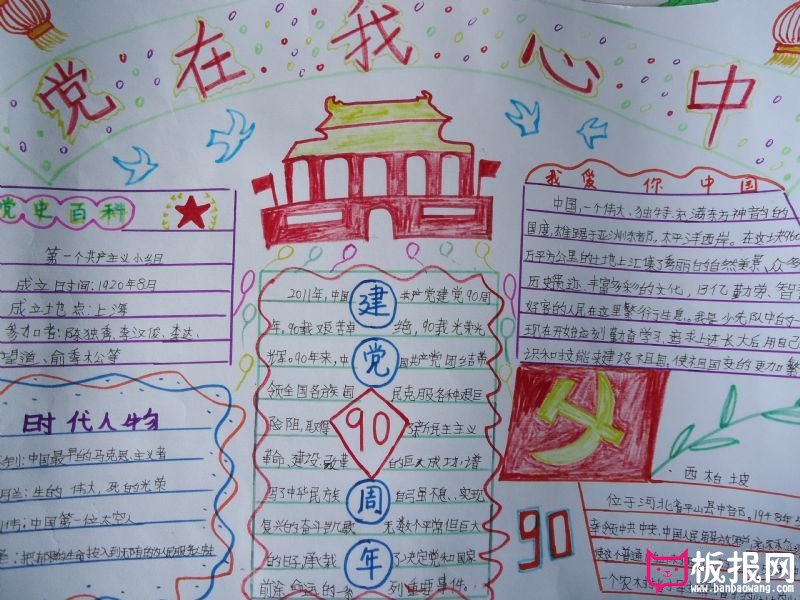 党在我心中
党史百科
第一个共产主义小组
成立日时间:1920年8月
成立地点:上海
参加者:陈独秀、李汉俊、李达、
望道、俞秀松等
时代人物
中国最早的马克思主义者
生的伟大,死的光荣
中国第一位太空人
2011年,中国共产党建党90周
年,90载艰苦卓绝,90载光荣光
辉。90年来,中国共产党团结带
领全国各族人民克服各种艰巨
险阻,取得了新民主主义
革命、建设、改革的巨大成功,谱
写了中华民族自强不息、实现
复兴的奋斗凯歌
无数个平常但巨大
的日子,承载了决定党和国家
前途命运的一系列重要事件。
建党90周年
我爱你中国
中国,一个伟大、独特、充满东方神韵的
国度,雄踞于亚洲东部,太平洋西岸。在这块960
万平方公里的土地上汇集了秀丽的自然美景、众多
历史遗迹、丰富多彩的文化,13亿勤劳、智
好客的人民在这里繁衍生息。我是小先队中的一
现在开始应刻勤奋学习,追求上进长大后用自己
识和技能来建设祖国,使祖国变的更加繁
西柏坡
位于河北省平山县中部。1948年
中共中央、中国人民解放军
使这个普通
一个农村
90
板报网
www.banbaowang.com